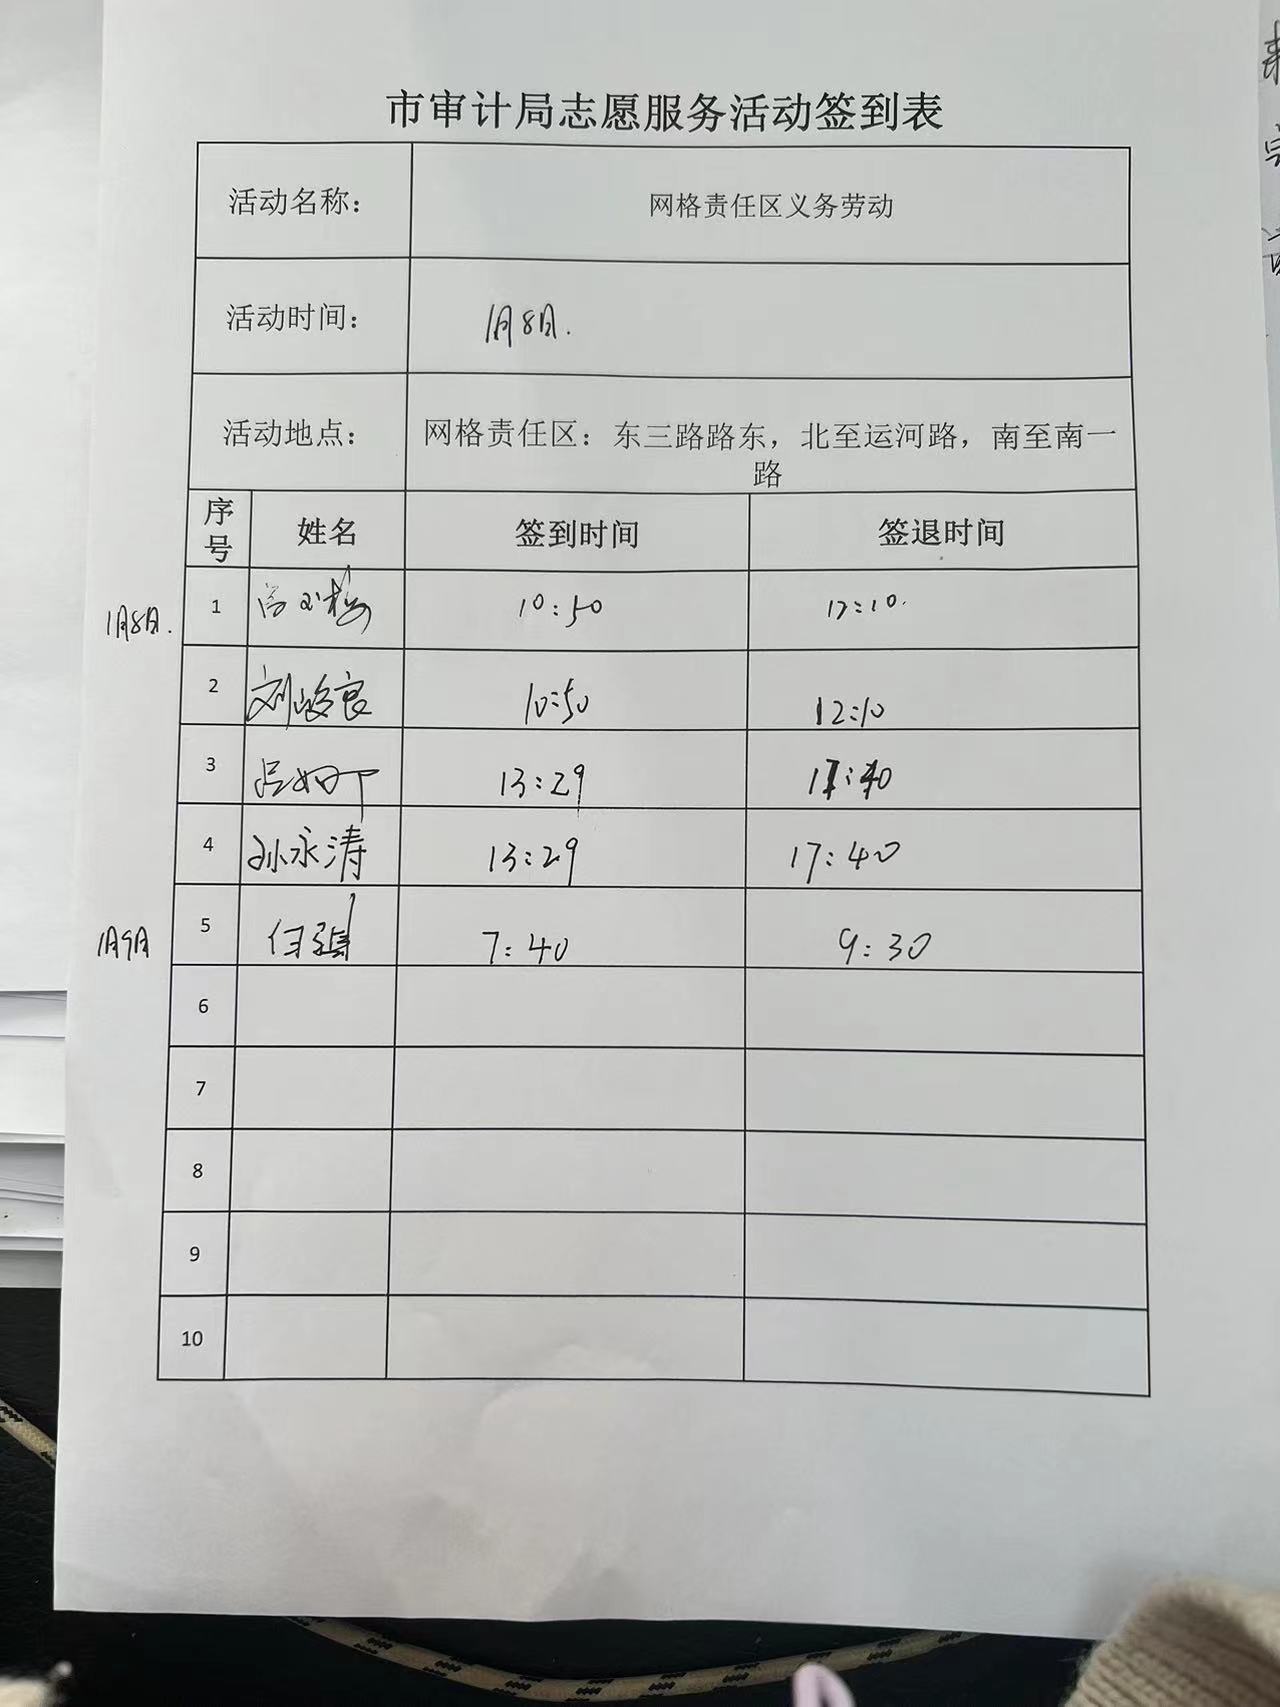 市审计局志愿服务活动签到表
活动名称： 网格责任区义务劳动
活动时间： 1月8日.
活动地点： 网格责任区：东三路路东，北至运河路，南至南一
路
序号 姓名 签到时间 签退时间
1月8日. 1 10:50 12:10.
2 刘 良 10:50 12:10
3 吕 13:29 17:40
4 孙永涛 13:29 17:40
1月9日 5 任强 7:40 9:30
6
7
8
9
10